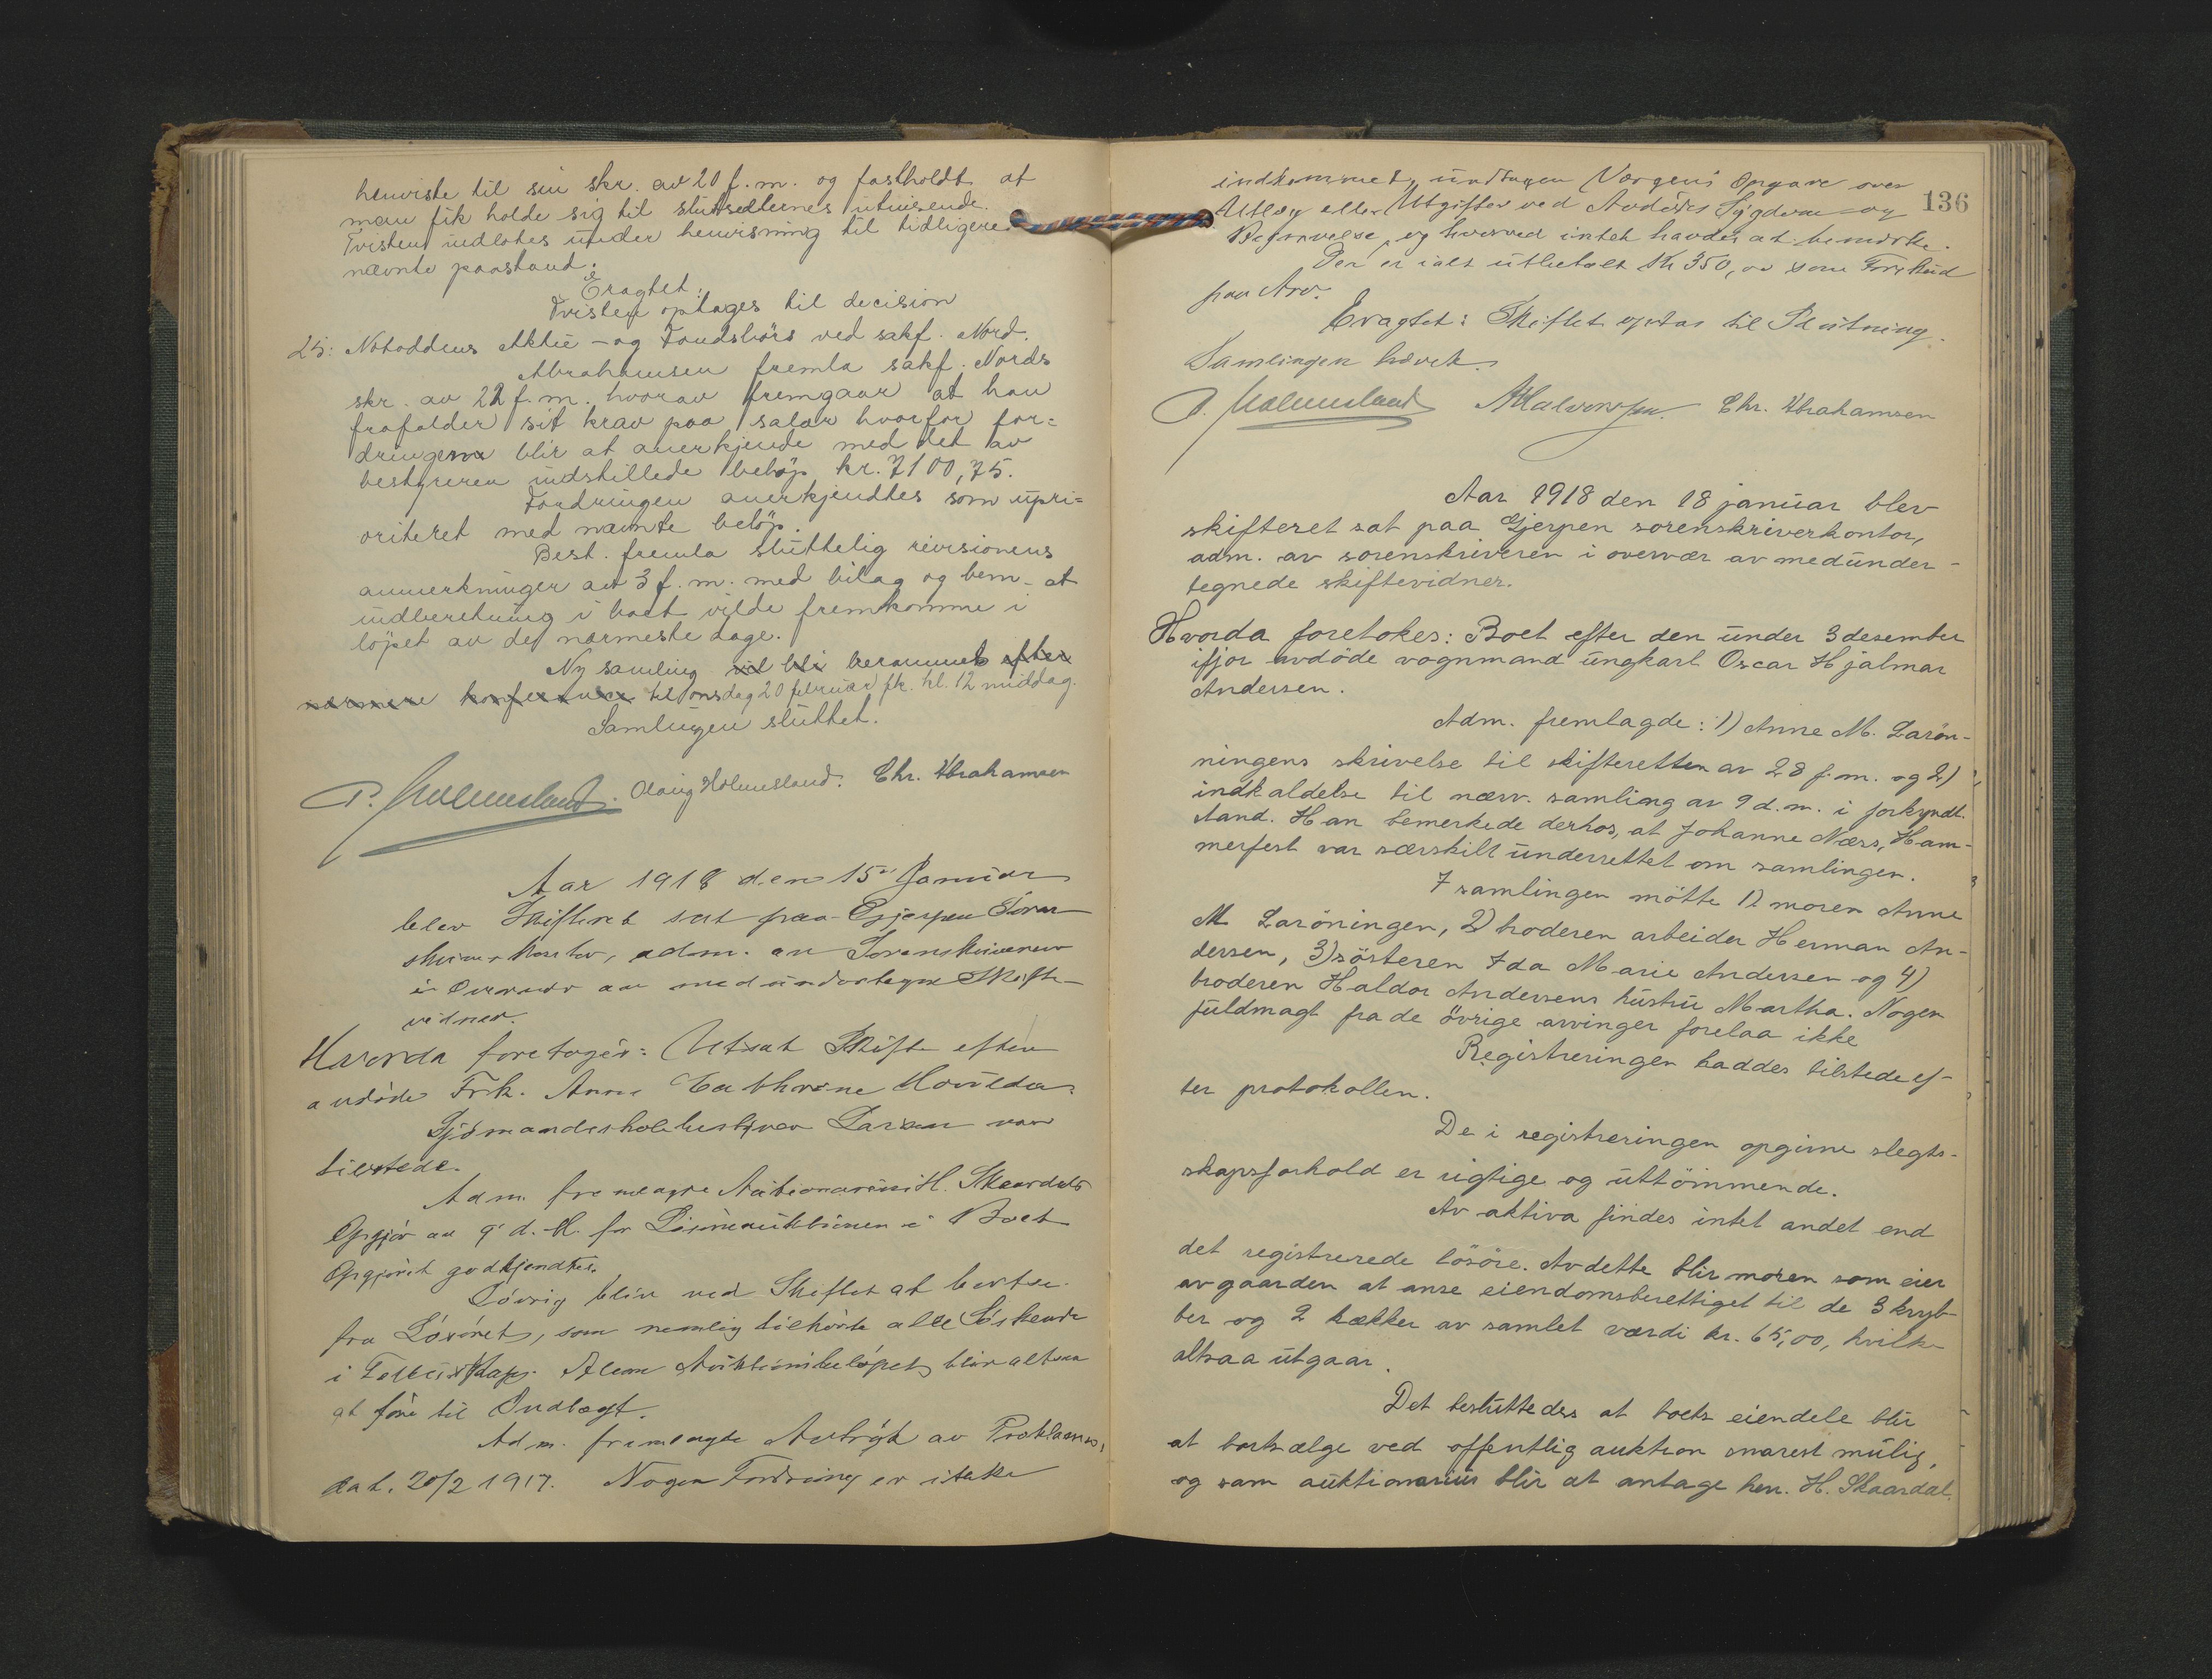 henviste til sin skr. av 20 f.m. og fastholdt at
man fik holde sig til slutsedlernes utvisende.
Tvisten indlotes under henvisning til tidligere
nævnte paastand.
Eragtet:
Tvisten optages til decision
25: Notoddens Aktie- og Fondsbörs ved sakf. Nord.
Abrahamsen fremla sakf. Nords
skr. av 22 f.m. hvorav fremgaar at han
frafalder sit krav paa salær hvorfor for=
dringerne blir at anerkjende med det av
bestyreren indstillede belöp kr. 7100,75.
Fordringen anerkjendtes som upri=
oriteret med nævnte belöp.
Best. fremla sluttelig revisionens
anmerkninger av 3 f.m. med bilag og bem. at
indberetning i boet vilde fremkomme i
löpet av de nærmeste dage.
Ny samling vil bli berammet efter
nærmere konferanse til onsdag 20 februar fk. kl. 12 middag.
Samlingen sluttet.
P. Holmesland. Aslaug Holmesland. Chr. Abrahamsen
Aar 1918 den 15. Januar
blev Skifteret sat paa Gjerpen Soren-
skriverkontor, adm. av Sorenskriveren
i Overvær av medundertegn Skifte-
vidner.
Hvorda foretoges: Utsat Skifte efter
avdöde Frk. Anna Cathrine Houlder
Sjömandsskolebestyrer Larsen var
tilstede.
Adm. fremlagde Auktionarius H. Skaardals
Opgjör av 9 d.M. for Lösöreauktionen i Boet
Opgjöret godkjendtes.
Iövrig bliver ved Skiftet at bortse
fra Lösöret, som nemlig tilhörte alle Söskende
i Fellesskap. Alene Auktionsbelöpet blir altsaa
at före til Indtægt.
Adm. fremlagde Avtryk av Proklama,
dat. 20/2 1917. Nogen Fordring er ikke
136
indkommet, undtagen Værgens Opgave over
Utlæg eller Utgifter ved Avdödes Sygdom og
Begravelse, og hvorved intet havdes at bemerke.
Der er ialt utbetalt Kr 350,00 som Forskud
paa Arv.
Eragtet: Skiftet optas til Slutning.
Samlingen hævet.
P. Holmesland AHalvorsen. Chr. Abrahamsen
Aar 1918 den 18 januar blev
skifteret sat paa Gjerpen sorenskriverkontor,
adm. av sorenskriveren i overvær av medunder-
tegnede skiftevidner.
Hvorda foretokes: Boet efter den under 3 desember
ifjor avdöde vognmand ungkarl Oscar Hjalmar
Andersen.
Adm. fremlagde: 1) Anne M. Larön-
ningens skrivelse til skifteretten av 28 f.m. og 2)
indkaldelse til nærv. samling av 9 d.m. i forkyndt
stand. Han bemerkede derhos, at Johanne Næss, Ham-
merfest var særskilt underrettet om samlingen.
I samlingen mötte 1) moren Anne
M Laröningen, 2) broderen arbeider Herman An-
dersen, 3) sösteren Ida Marie Andersen og 4)
broderen Haldor Andersens hustru Martha. Nogen
fuldmagt fra de övrige arvinger forelaa ikke
Registreringen haddes tilstede ef-
ter protokollen.
De i registreringen opgivne slegts-
skapsforhold er rigtige og uttömmende.
Av aktiva findes intet andet end
det registrerede lösöre. Av dette blir moren som eier
av gaarden at anse eiendomsberettiget til de 3 kryb-
ber og 2 hækker av samlet værdi kr. 65,00, hvilke
altsaa utgaar.
Det besluttedes at boets eiendele blir
at bortsælge ved offentlig auktion snarest mulig,
og som auktionarius blir at antage hr. H. Skaardal.